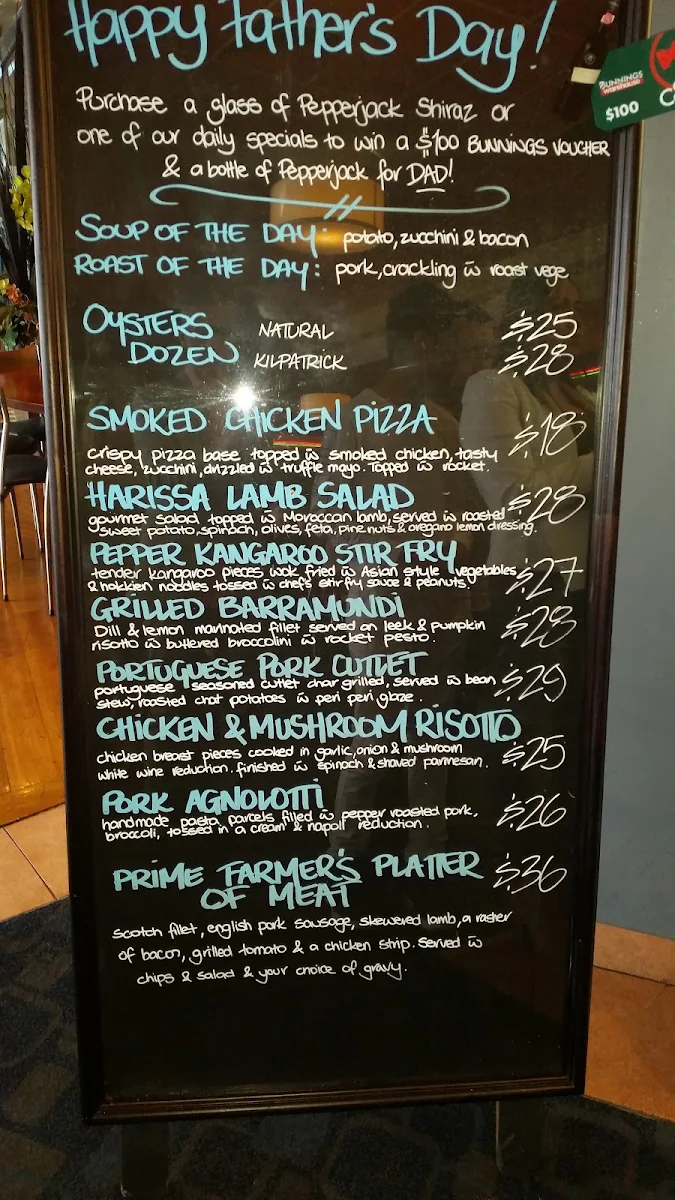 Happy Father's Day!
Purchase a glass of Pepperjack Shiraz or
one of our daily specials to win a $100 BUNNINGS VOUCHER
& a bottle of Pepperjack for DAD!
BUNNINGS
warehouse
$100
SOUP OF THE DAY: potato, zucchini & bacon
ROAST OF THE DAY: pork, crackling w roast vege
OYSTERS NATURAL $25
DOZEN KILPATRICK $28
SMOKED CHICKEN PIZZA $18
crispy pizza base topped w smoked chicken, tasty
cheese, zucchini, drizzled w truffle mayo. Topped w rocket.
HARISSA LAMB SALAD $28
gourmet salad topped w Moroccan lamb, served w roasted
sweet potato, spinach, olives, feta, pine nuts & oregano lemon dressing.
PEPPER KANGAROO STIR FRY $27
tender kangaroo pieces wok fried w Asian style vegetables
& hokkien noodles tossed w chefs stir fry sauce & peanuts.
GRILLED BARRAMUNDI $28
Dill & lemon marinated fillet served on leek & pumpkin
risotto w buttered broccolini w rocket pesto.
PORTUGUESE PORK CUTLET $29
portuguese seasoned cutlet char grilled, served w bean
stew, roasted chat potatoes w peri peri glaze.
CHICKEN & MUSHROOM RISOTTO $25
chicken breast pieces cooked in garlic, onion & mushroom
white wine reduction. finished w spinach & shaved parmesan.
PORK AGNOLOTTI $26
handmade pasta parcels filled w pepper roasted pork,
broccoli, tossed in a cream & napoli reduction.
PRIME FARMER'S PLATTER $36
OF MEAT
scotch fillet, english pork sausage, skewered lamb, a rasher
of bacon, grilled tomato & a chicken strip. Served w
chips & salad & your choice of gravy.